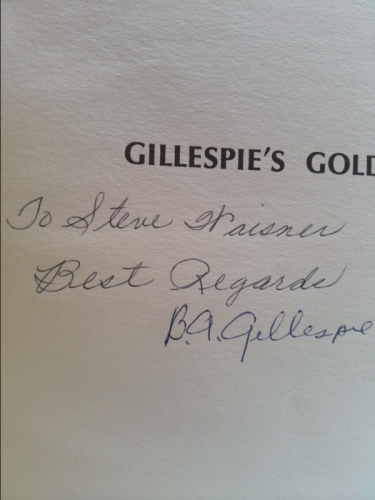 GILLESPIE'S GOLD
To Steve Waisner
Best Regards
B.A. Gillespie